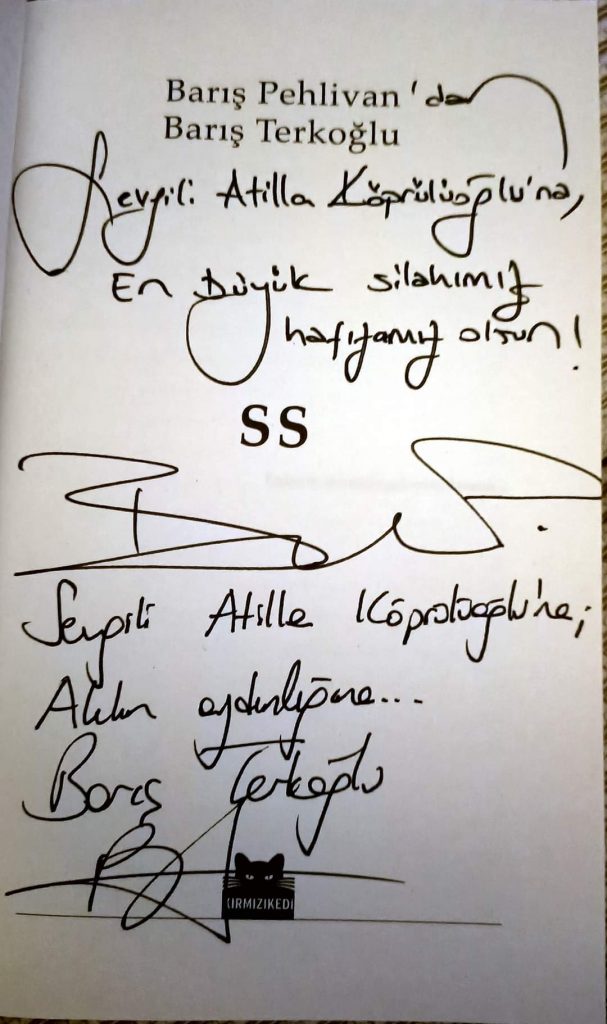 Barış Pehlivan 'dan
Barış Terkoğlu
Sevgili Atilla Köprülüoğlu'na,
En Büyük silahımız
hafızamız olsun!
SS
Sevgili Atilla Köprülüoğlu'na;
Aklın aydınlığına...
Barış Terkoğlu
KIRMIZIKEDİ